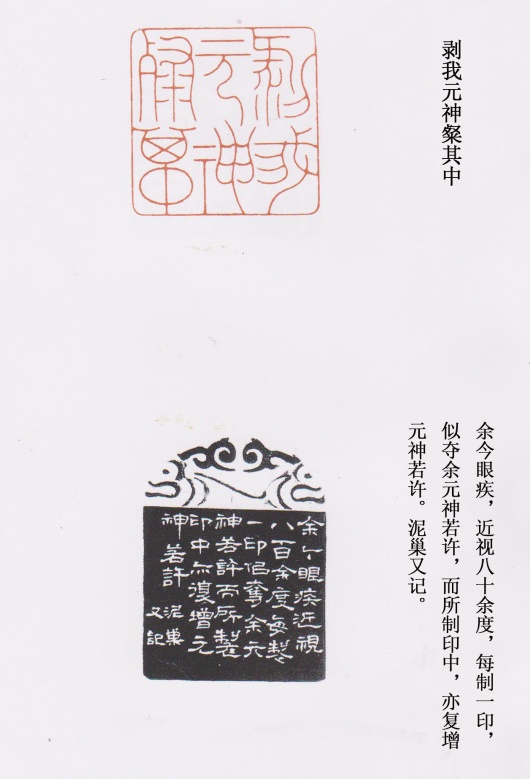 剥我
元神
剥我元神粲其中
余今眼疾近視
八百余度每製
一印佀奪余元
神若許而所製
印中亦復增元
神若許 泥巢
又記
余今眼疾，近视八十余度，每制一印，
似夺余元神若许，而所制印中，亦复增
元神若许。泥巢又记。